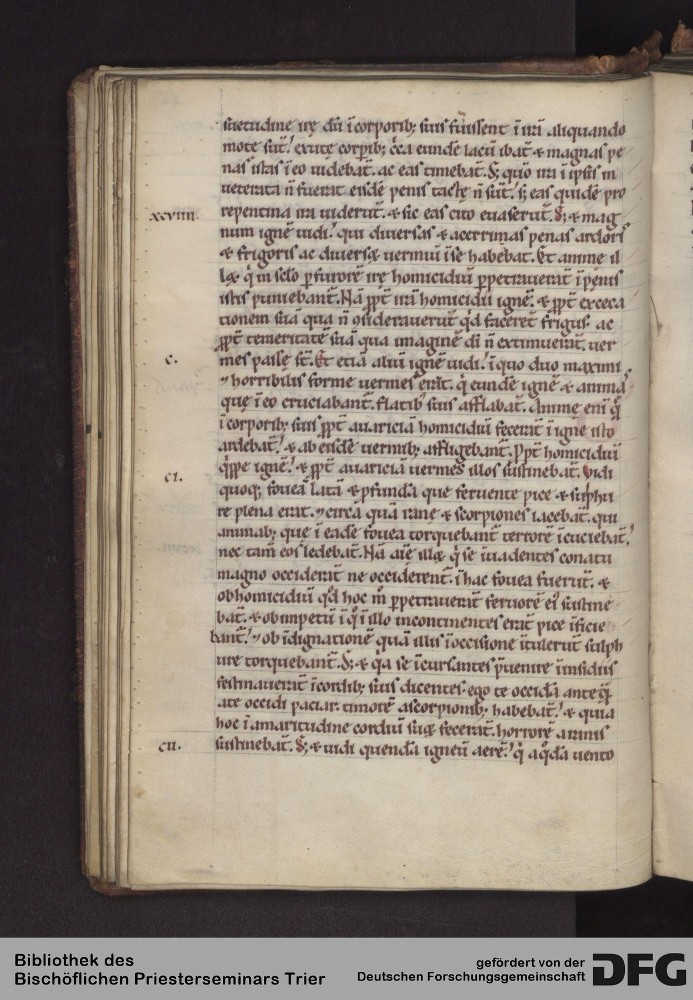 suetudine irę dū ī corporib; suis fuissent ī irā aliquando
mote sūt! exutę corpib; c̄ca eundē lacū ibāt ⁊ magnas pe
nas istas ī eo uidebāt. ac eas timebāt. S; quō ira ī ipsis in
ueterata ñ fuerat eisdē penis tactę ñ sūt! s; eas quidē pro
xcviiii.
repentina ira uiderūt. ⁊ sic eas cito euaserūt. S; ⁊ mag
num ignē uidi! qui diuersas ⁊ acerrimas penas ardoris
⁊ frigoris ac diuersę uermiū ī se habebat. Et anime il
lę q̄ in selo p furorē irę homicidiū ppetrauerāt ī penis
istis puniebant̄. Nā ppt irā homicidii ignē. ⁊ ppt exceca
tionem suā qua ñ ꝯsiderauerūt qd facerēt frigus. ac
ppt temeritatē suā qua imaginē dī ñ extimuerāt. uer
c.
mes passę st̄. Et etiā aliū ignē uidi! ī quo duo maximi
⁊ horribilis forme uermes erāt. q̄ eundē ignē ⁊ animas
quę ī eo cruciabant̄. flatib; suis afflabāt. Anime eni q̄
ī corporib; suis ppt auariciā homicidiū fecerāt ī igne isto
ardebāt! ⁊ ab eisdē uermib; affligebant̄. Ppt homicidiū
qppe ignē! ⁊ ppt auariciā uermes illos sustinebāt. Vidi
ci.
quoq; foueā latā ⁊ pfundā que feruente pice ⁊ sulphu
re plena erat. ⁊ circa quā ranę ⁊ scorpiones iacebāt. qui
animab; que ī eadē fouea torquebant̄ terrorē īcuciebāt!
nec tam̄ eos ledebāt. Nā aīe illę q̄ se īuadentes conatu
magno occiderāt ne occiderent̄. ī hac fouea fuerūt. ⁊
ob homicidiū qd hoc m̄ ppetrauerāt feruorē ei sustine
bāt. ⁊ ob impetū ī q̄ ī illo incontinentes erāt pice īficie
bant̄! ⁊ ob īdignationē quā illis ī occisione ītulerūt sulph
ure torquebant̄. S; ⁊ qa se īcursantes puenire īsidiis
festinauerāt ī cordib; suis dicentes. ego te occidā ante q̄
a te occidi paciar. timorē a scorpionib; habebāt! ⁊ quia
hoc ī amaritudine cordiū suoꝝ fecerāt. horrorē a ranis
cii.
sustinebāt. S; ⁊ uidi quendā igneū aerē! q̄ a qdā uento
Bibliothek des
Bischöflichen Priesterseminars Trier
gefördert von der
Deutschen Forschungsgemeinschaft
DFG